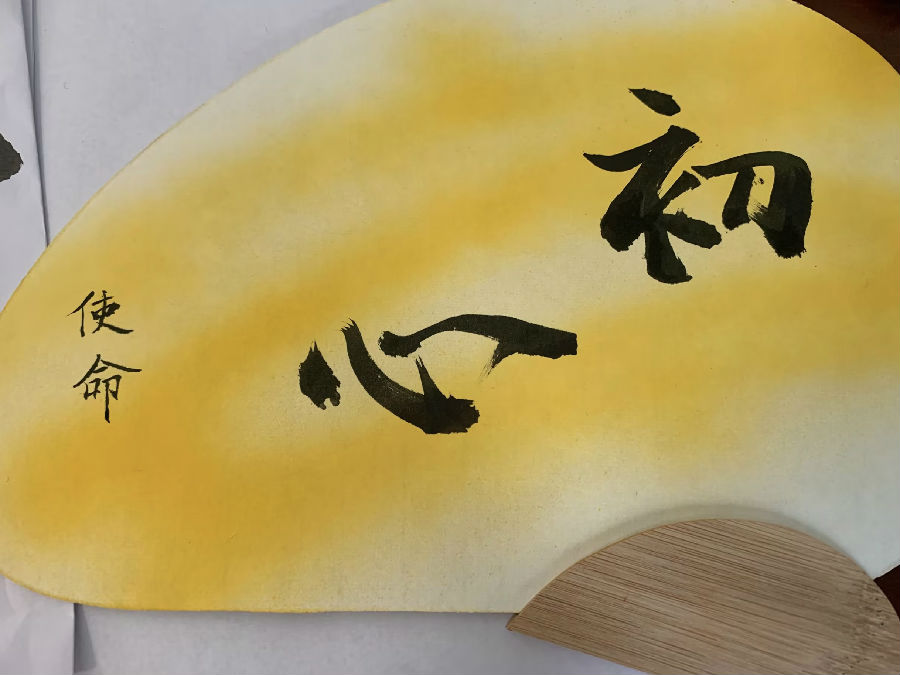 初心
使命